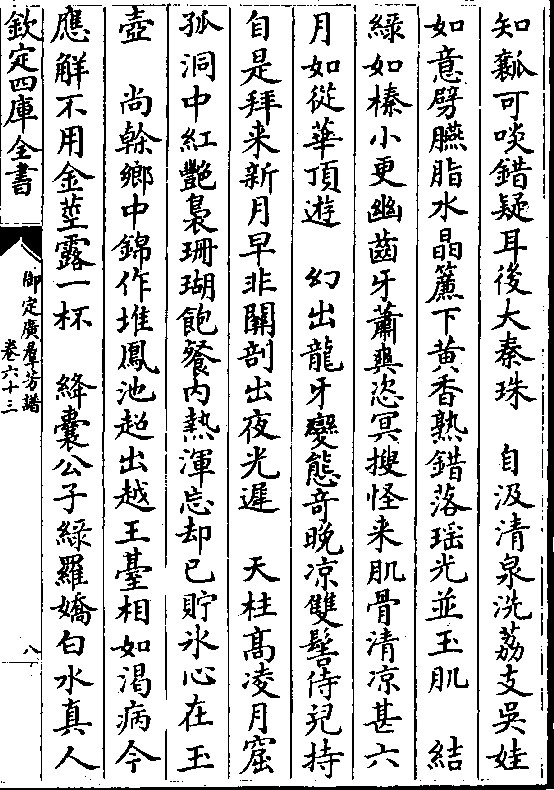 知瓤可啖錯疑耳後大秦珠　自汲清泉洗荔支吳娃
如意劈臙脂水晶簾下黄香熟錯落瑶光並玉肌　結
緑如榛小更幽齒牙蕭爽恣冥搜怪来肌骨清凉甚六
月如從華頂遊　幻出龍牙變態竒晚凉雙髻侍兒持
自是拜来新月早非關剖出夜光遲　天柱髙凌月窟
孤洞中紅艷裊珊瑚飽餐内熱渾忘却已貯氷心在玉
壺　尚榦鄉中錦作堆鳳池超出越王臺相如渴病今
應解不用金莖露一杯　絳囊公子緑羅嬌白水真人
欽定四庫全書
御定廣羣芳譜
卷六十三
八